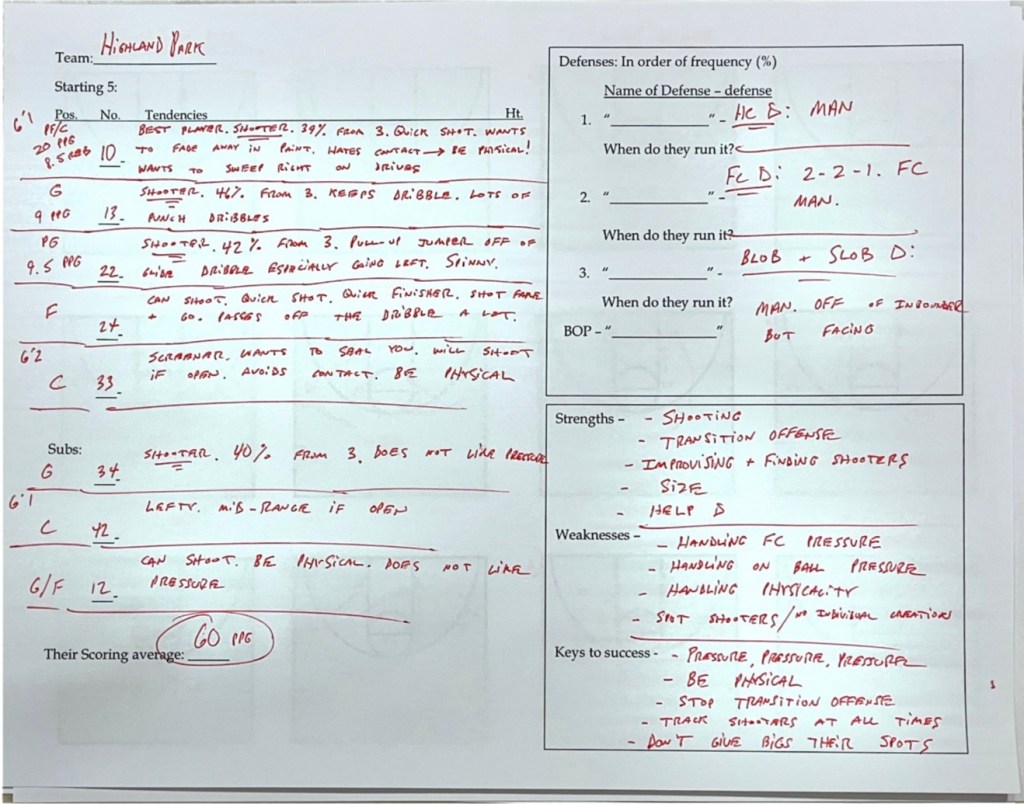 Team: HIGHLAND PARK
Starting 5:
Pos. No. Tendencies Ht.
6'1
PF/C
20 PPG
8.5 REB
10
BEST PLAYER. SHOOTER. 39% FROM 3. QUICK SHOT. WANTS
TO FADE AWAY IN PAINT. HATES CONTACT → BE PHYSICAL!
WANTS TO SWEEP RIGHT ON DRIVES
G
9 PPG
13
SHOOTER. 46% FROM 3. KEEPS DRIBBLE. LOTS OF
PUNCH DRIBBLES
PG
9.5 PPG
22
SHOOTER. 42% FROM 3. PULL-UP JUMPER OFF OF
GLIDE DRIBBLE ESPECIALLY GOING LEFT. SPINNY.
F
24
CAN SHOOT. QUICK SHOT. QUICK FINISHER. SHOT FAKE
+ GO. PASSES OFF THE DRIBBLE A LOT.
6'2
C
33
SCREENER. WANTS TO SEAL YOU. WILL SHOOT
IF OPEN. AVOIDS CONTACT. BE PHYSICAL
Subs:
G
34
SHOOTER. 40% FROM 3. DOES NOT LIKE PRESSURE
6'1
C
42
LEFTY. MID-RANGE IF OPEN
G/F
12
CAN SHOOT. BE PHYSICAL. DOES NOT LIKE
PRESSURE
Their Scoring average: 60 PPG
Defenses: In order of frequency (%)
Name of Defense – defense
1. "____" - HC D: MAN
When do they run it?
2. "____" - FC D: 2-2-1. FC
MAN.
When do they run it?
3. "____" - BLOB + SLOB D:
When do they run it? MAN. OFF OF INBOUNDER
BUT FACING
BOP – "____"
Strengths – - SHOOTING
- TRANSITION OFFENSE
- IMPROVISING + FINDING SHOOTERS
- SIZE
- HELP D
Weaknesses – - HANDLING FC PRESSURE
- HANDLING ON BALL PRESSURE
- HANDLING PHYSICALITY
- SPOT SHOOTERS/NO INDIVIDUAL CREATION
Keys to success - - PRESSURE, PRESSURE, PRESSURE
- BE PHYSICAL
- STOP TRANSITION OFFENSE
- TRACK SHOOTERS AT ALL TIMES
- DON'T GIVE BIGS THEIR SPOTS